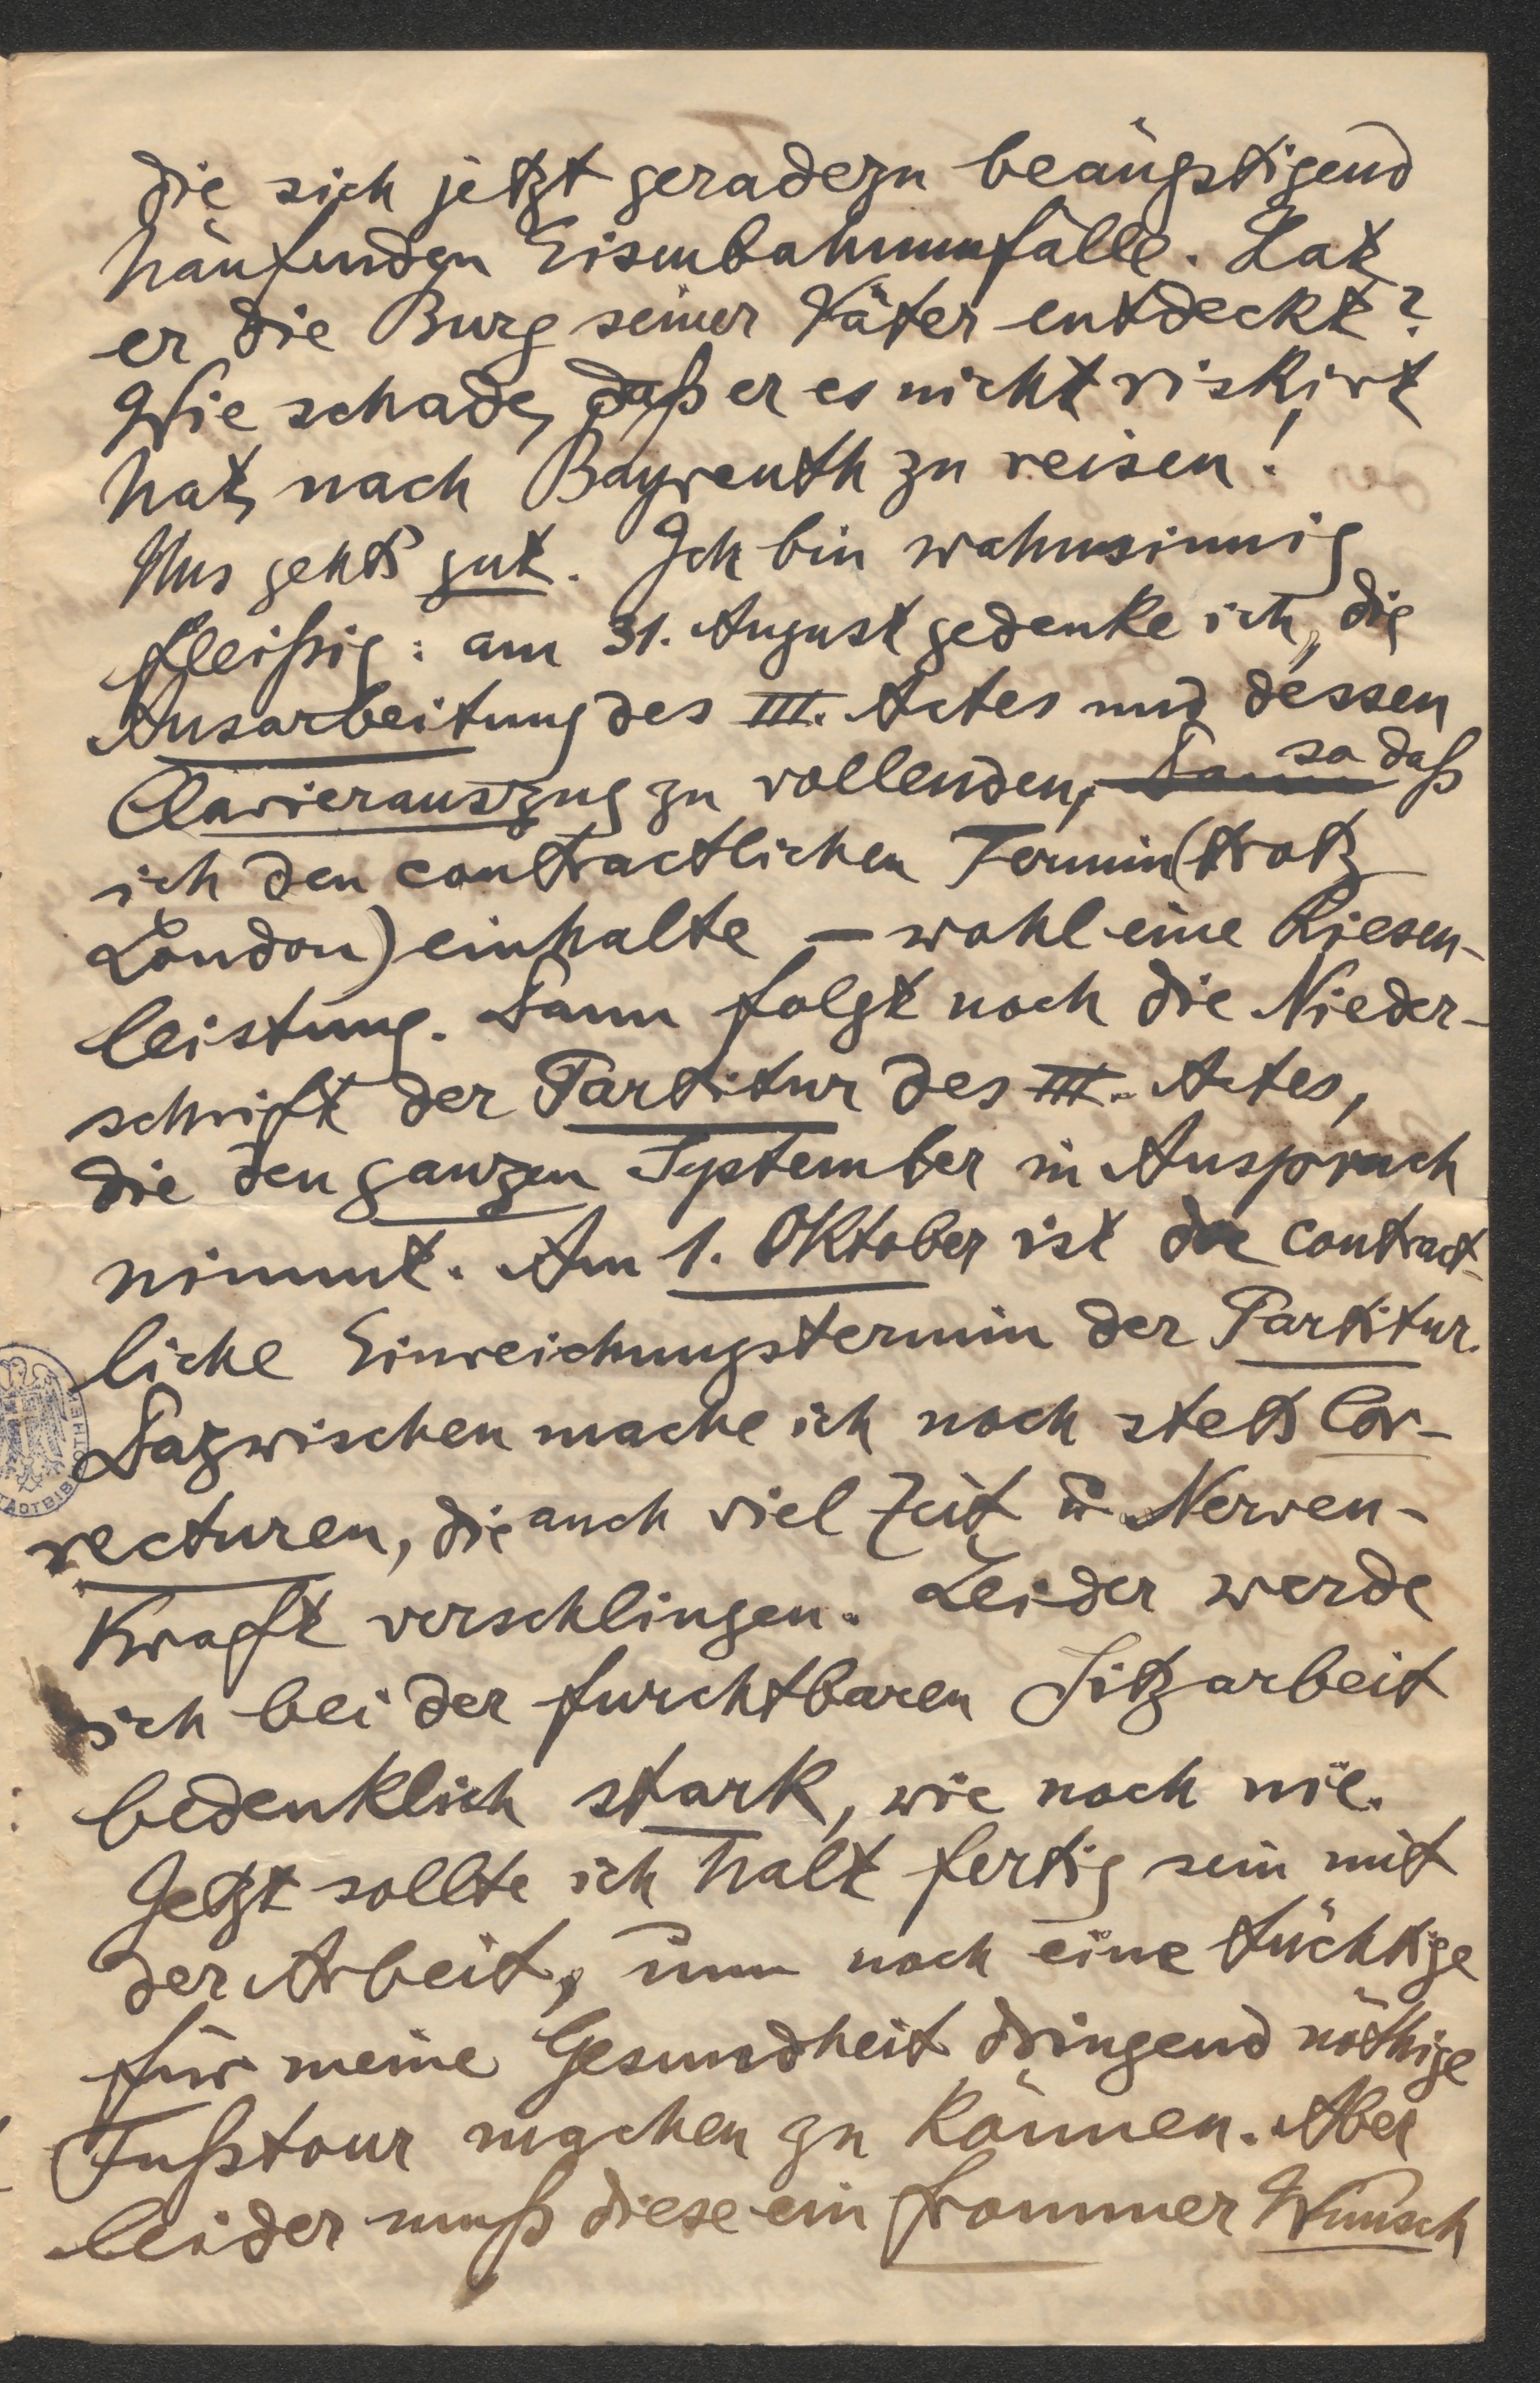 die sich jetzt geradezu beängstigend
häufenden Eisenbahnunfälle. Hat
er die Burg seiner Väter entdeckt?
Wie schade, daß er es nicht riskirt
hat, nach Bayreuth zu reisen!
Uns gehts gut. Ich bin wahnsinnig
fleißig: am 31. August gedenke ich, die
Ausarbeitung des III. Actes und dessen
Clavierauszug zu vollenden, so daß
ich den contractlichen Termin (trotz
London) einhalte – wohl eine Riesen-
leistung. Dann folgt noch die Nieder-
schrift der Partitur des III. Actes,
die den ganzen September in Anspruch
nimmt. Am 1. Oktober ist der contract-
liche Einreichungstermin der Partitur.
Dazwischen mache ich noch stets Cor-
recturen, die auch viel Zeit u. Nerven-
Kraft verschlingen. Leider werde
ich bei der furchtbaren Sitzarbeit
bedenklich stark, wie noch nie.
Jetzt sollte ich halt fertig sein mit
der Arbeit, um noch eine tüchtige
für meine Gesundheit dringend nöthige
Fußtour machen zu können. Aber
leider muß diese ein frommer Wunsch